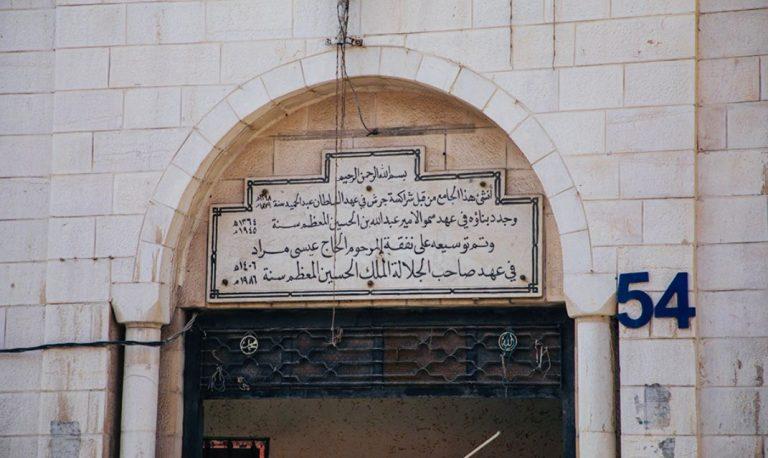 بسم الله الرحمن الرحيم
أنشئ هذا الجامع من قبل شراكسة جرش في عهد السلطان عبد الحميد سنة
وجدد بناؤه في عهد سمو الامير عبدالله بن الحسين المعظم سنة ١٣٦٤هـ ١٩٤٥م
وتم توسيعه على نفقة المرحوم الحاج عيسى مراد
في عهد صاحب الجلالة الملك الحسين المعظم سنة ١٤٠٦هـ ١٩٨٦م
54
الله
محمد